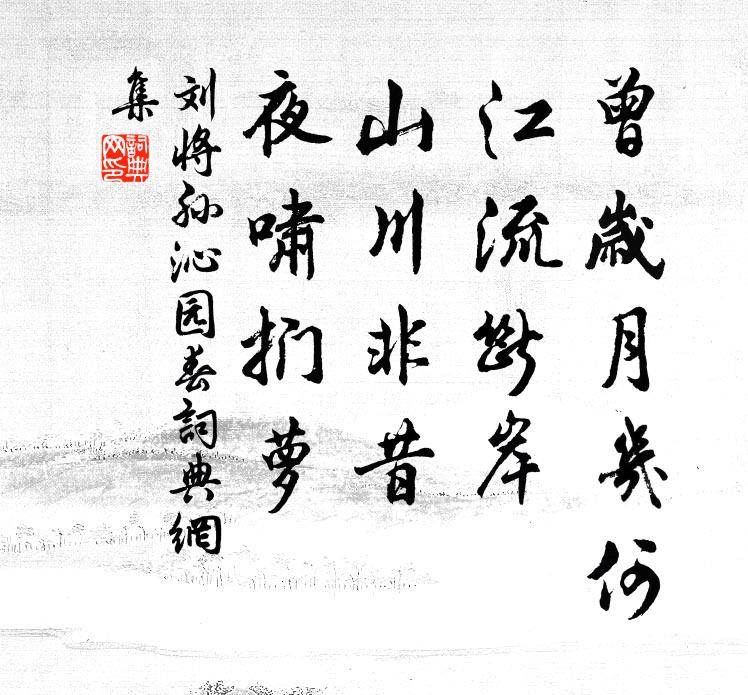 曾歲月幾何
江流斷岸
山川非昔
夜嘯捫夢
刘将孙沁园春詞典網
集
詞典
网印